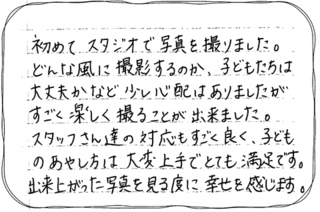 初めてスタジオで写真を撮りました。
どんな風に撮影するのか、子どもたちは
大丈夫かなど少し心配はありましたが
すごく楽しく撮ることが出来ました。
スタッフさん達の対応もすごく良く、子ども
のあやし方は大変上手でとても満足です。
出来上がった写真を見る度に幸せを感じます。